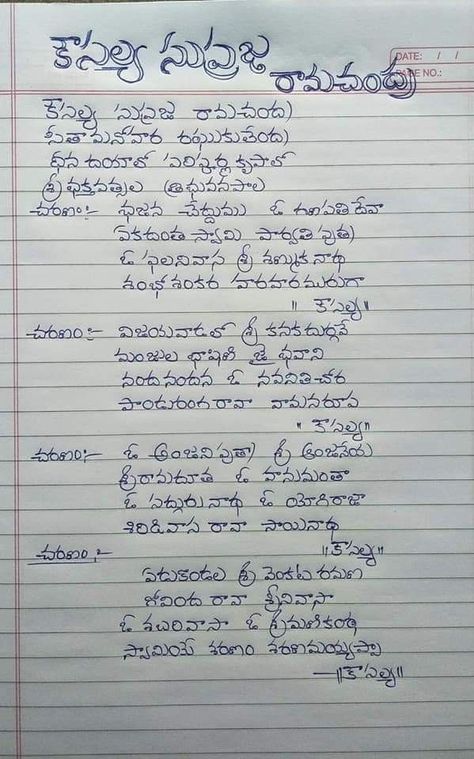 కౌసల్య సుప్రజ
రామచంద్ర
DATE: / /
PAGE NO.:
కౌసల్య సుప్రజ రామచంద్ర
సీతా మనోహర రఘుకుతేంద్ర
దీన దయాలో పరిపూర్ణ కృపాలో
శ్రీ భక్తవత్సల త్రిభువనపాల
చరణం:- భజన చేద్దుము ఓ గణపతి దేవా
ఏకదంత స్వామి పార్వతి పుత్ర
ఓ ఫలనివాస శ్రీ శణ్ముక నాథ
శంభో శంకర హరహర మురుగా
"కౌసల్య"
చరణం:- విజయవాడలో శ్రీ కనకదుర్గవే
మంజుల భాషిణి జై భవాని
నందనందన ఓ నవనితచోర
పాండురంగ రావా వామనరూప
"కౌసల్య"
చరణం:- ఓ అంజని పుత్ర శ్రీ ఆంజనేయ
శ్రీరామదూత ఓ హనుమంతా
ఓ సద్గురు నాథ ఓ యోగిరాజా
శిరిడివాస రావా సాయినాథ
"కౌసల్య"
చరణం:-
ఏడుకొండల శ్రీ వెంకట రమణ
గోవింద రావా శ్రీనివాసా
ఓ శబరివాసా ఓ శ్రీమణికంఠ
స్వామియే శరణం శరణమయ్యప్పా
—"కౌసల్య"